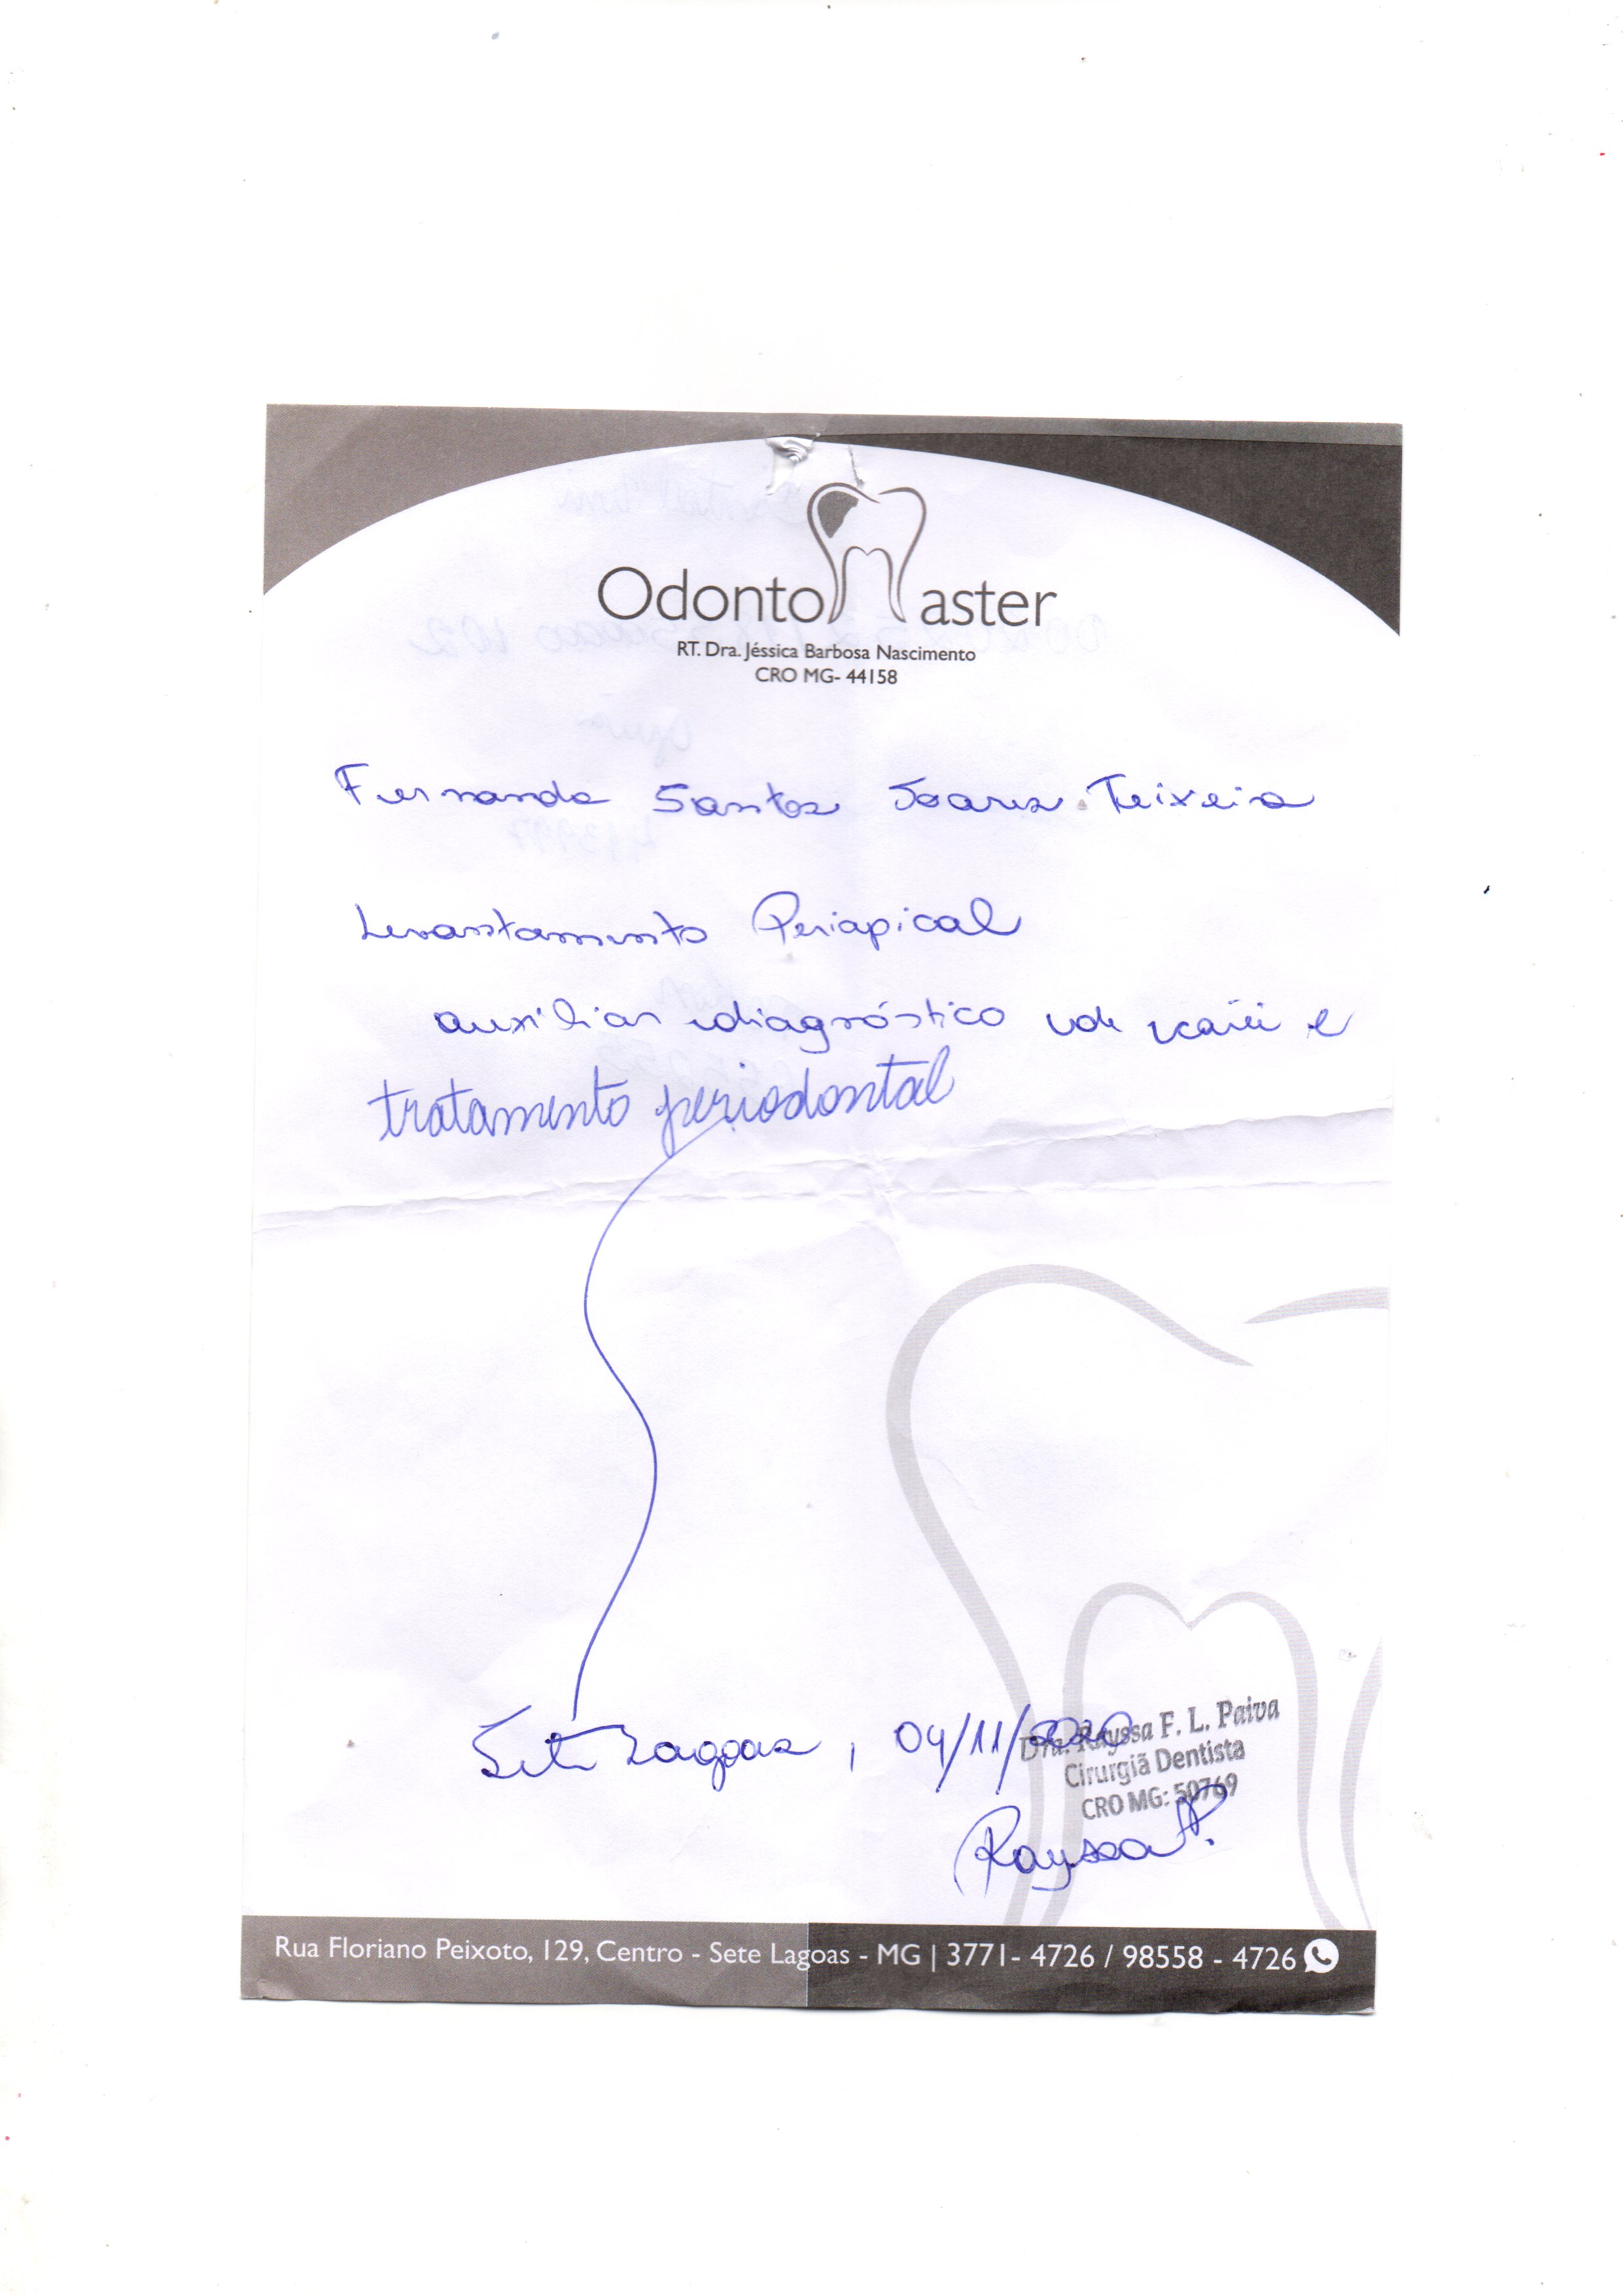 Odonto Master
RT. Dra. Jéssica Barbosa Nascimento
CRO MG- 44158
Fernanda Santos Soares Teixeira
Levantamento Periapical
auxiliar diagnóstico de cárie e
tratamento periodontal
Sete Lagoas, 04/11/2020
Dra. Rayssa F. L. Paiva
Cirurgiã Dentista
CRO MG: 50769
Rayssa P.
Rua Floriano Peixoto, 129, Centro - Sete Lagoas - MG | 3771- 4726 / 98558 - 4726